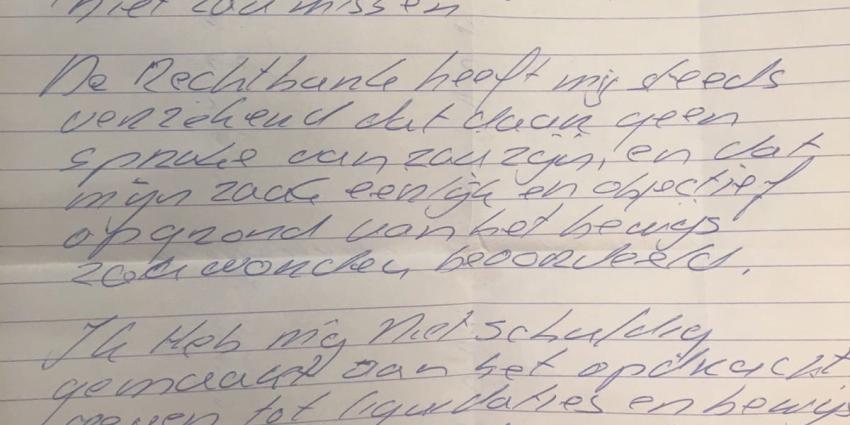 niet zou missen
De Rechtbank heeft mij steeds
verzekerd dat daar geen
sprake van zou zijn, en dat
mijn zaak eerlijk en objectief
op grond van het bewijs
zou worden beoordeeld.
Ik Heb mij Niet schuldig
gemaakt aan het opdracht
geven tot liquidaties en bewijs